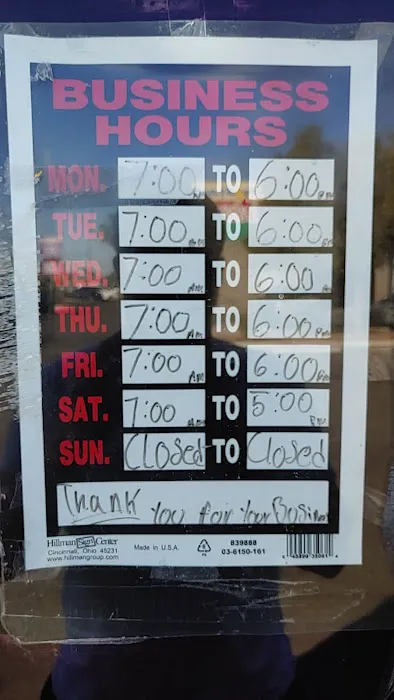 BUSINESS
HOURS
MON. 7:00 TO 6:00 pm
TUE. 7:00 am TO 6:00
WED. 7:00 am TO 6:00 pm
THU. 7:00 Am TO 6:00 Pm
FRI. 7:00 Am TO 6:00 pm
SAT. 7:00 am TO 5:00 Pm
SUN. Closed TO Closed
Thank
You for Your Busin
Hillman Sign Center
Cincinnati, Ohio 45231
www.hillmangroup.com
Made in U.S.A.
839888
03-6150-161